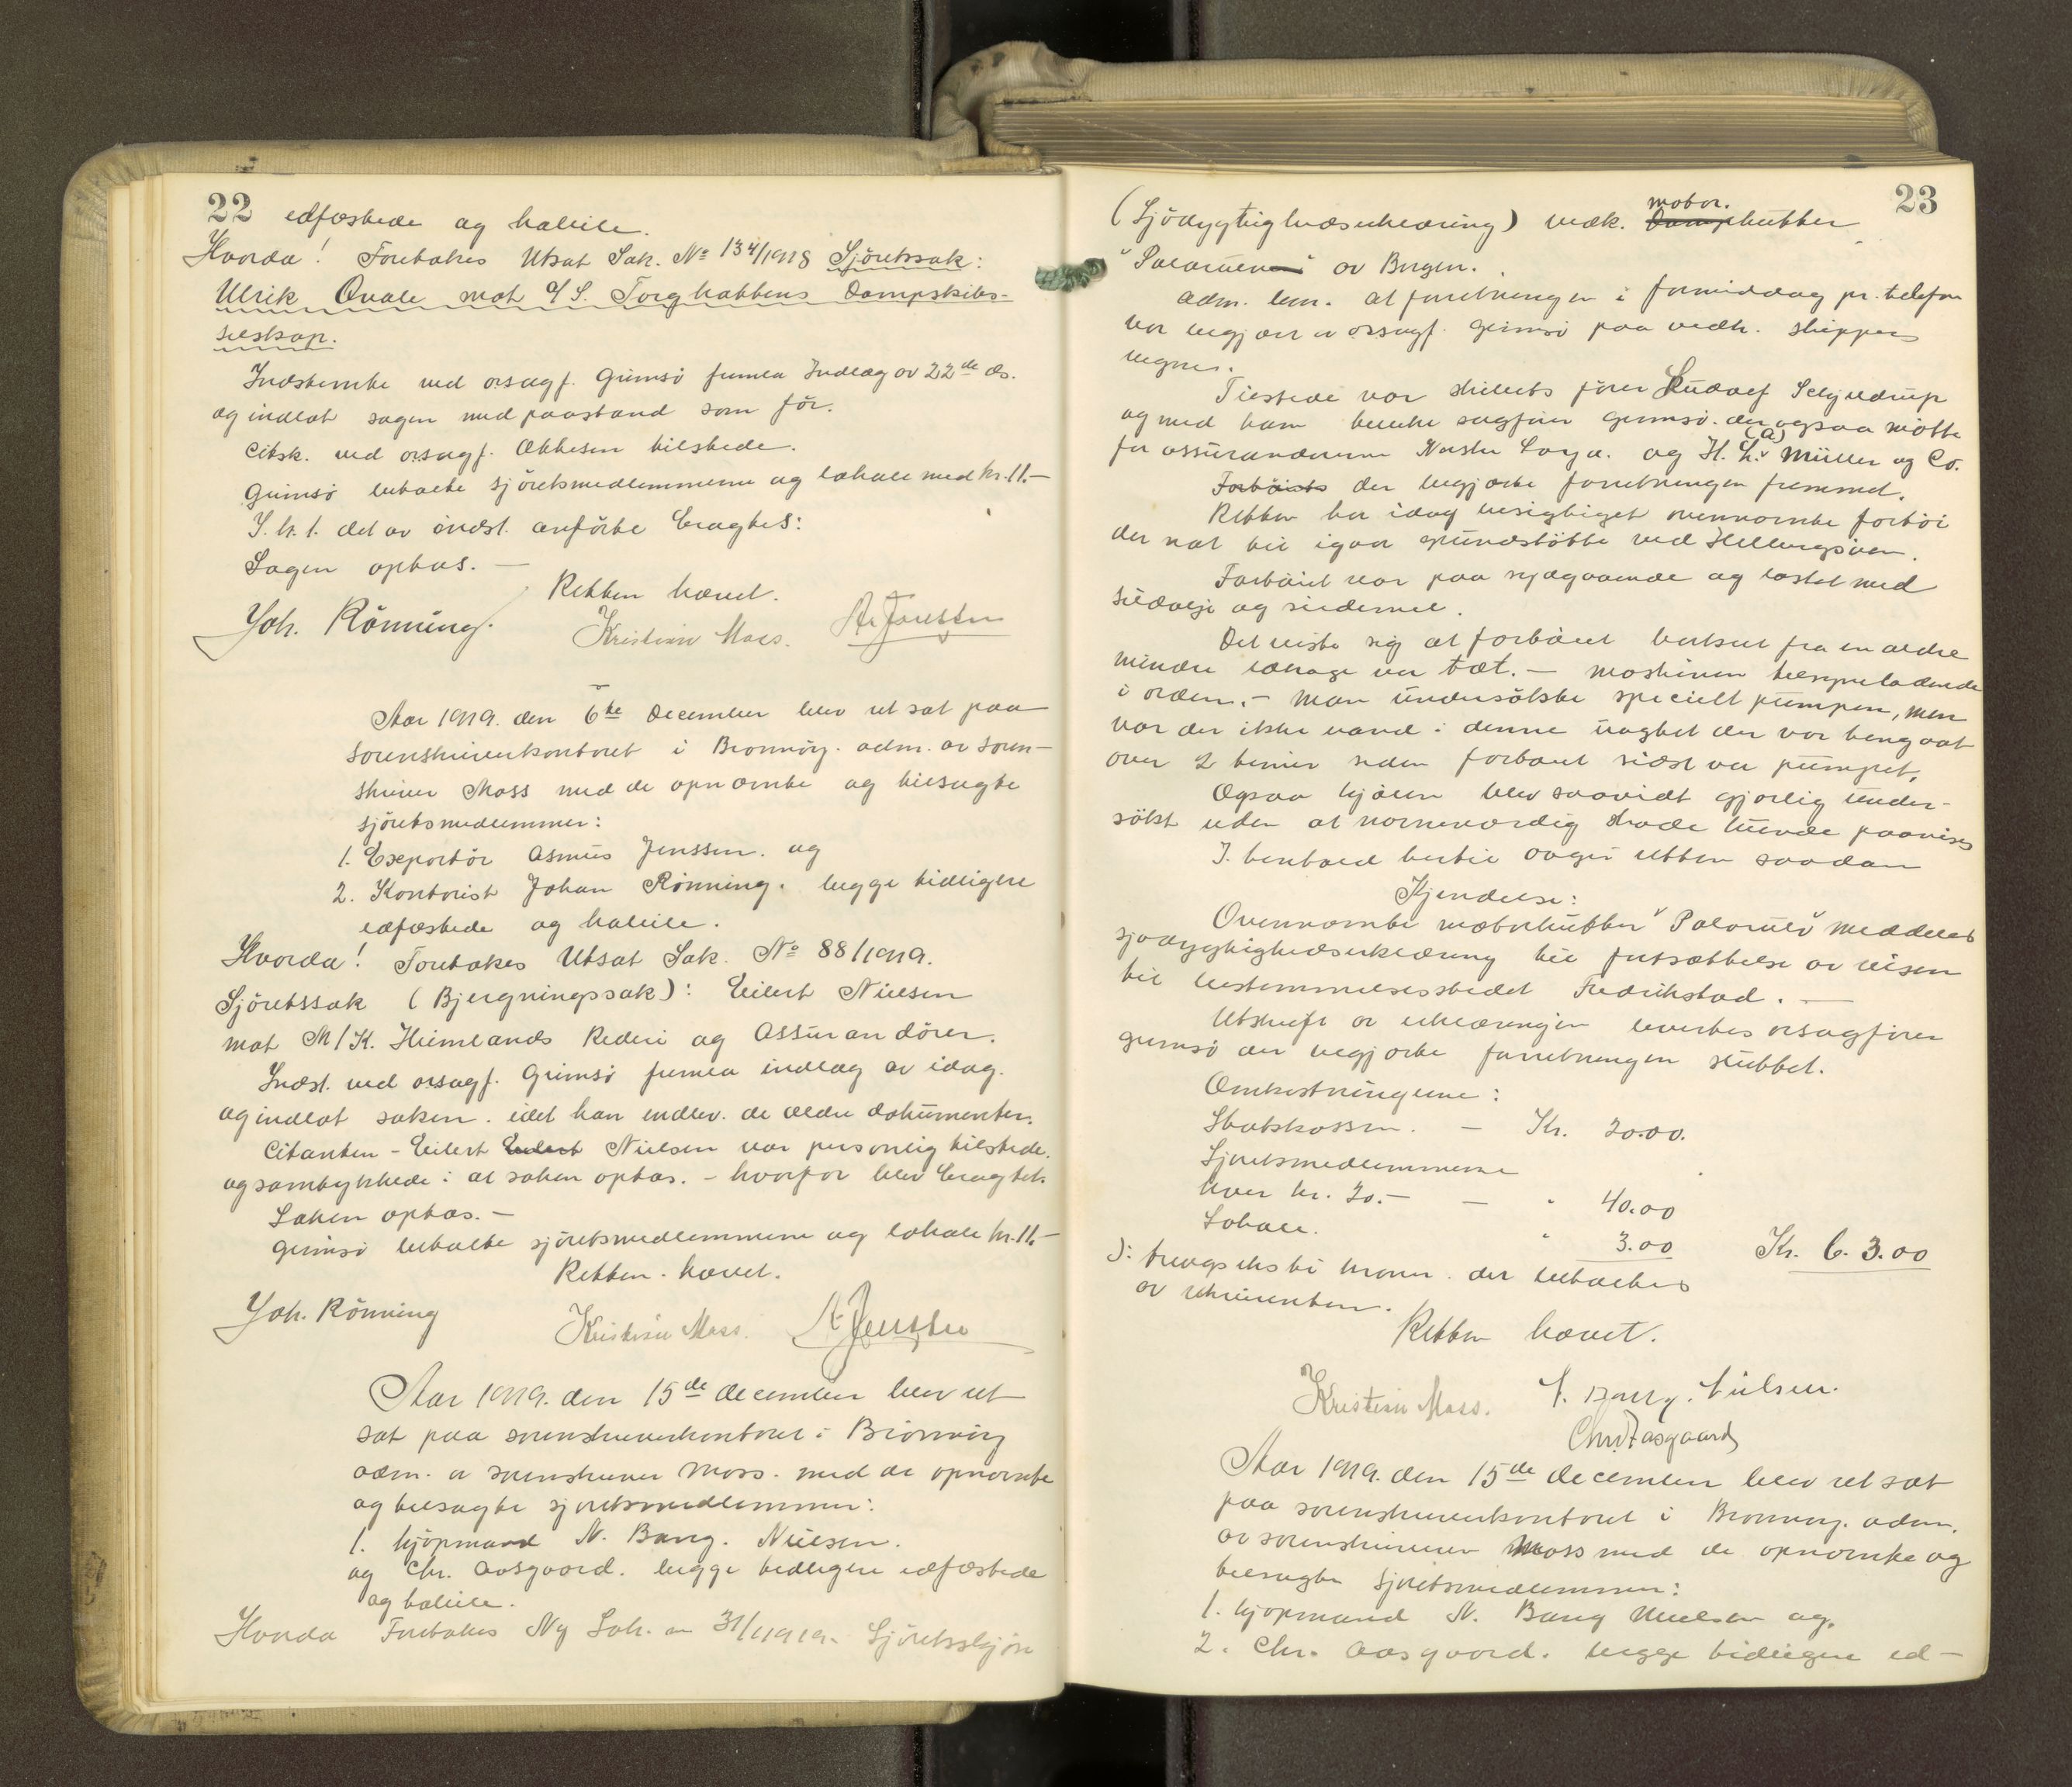 22 edfæstede og habile.
Hvorda! Foretokes Utsat Sak. No 134/1918 Sjöretssak:
Ulrik Qvale mot A/S. Torghattens Dampskibs-
selskap.
Indstevnte ved orsagf. Grimsö fremla Indlæg av 22de ds.
og indlot sagen med paastand som för.
Citsk. ved orsagf. Ebbesen tilstede.
Grimsö betalte sjöretsmedlemmerne og lokale med kr. 11.-
I. h. t. det av indst. anförte eragtes:
Sagen optas. -
Retten hævet.
Joh. Rönning. Kristian Moss. A. Jenssen
Aar 1919. den 6te December blev ret sat paa
sorenskriverkontoret i Brönnöy. adm. av soren-
skriver Moss med de opnævnte og tilsagte
sjöretsmedlemmer:
1. Exportör Asmus Jenssen. og
2. Kontorist Johan Rönning. begge tidligere
edfæstede og habile.
Hvorda! Foretokes Utsat Sak. No 88/1919.
Sjöretssak (Bjergningssak): Eilert Nielsen
mot M/K. Heimlands Rederi og Assurandörer.
Indst. ved orsagf. Grimsö fremla indlæg av idag.
og indlot saken. idet han endlev. de ældre dokumenter.
Citanten - Eilert Eilert Nielsen var personlig tilstede.
og samtykkede i at saken optas. - hvorfor blev eragtet:
Saken optas. -
Grimsö betalte sjöretsmedlemmerne og lokale kr. 11.-
Retten. hævet.
Joh. Rönning Kristian Moss. A. Jenssen
Aar 1919. den 15de december blev ret
sat paa sorenskriverkontoret i Brönnöy
adm. av sorenskriver Moss. med de opnævnte
og tilsagte sjöretsmedlemmer:
1. kjöpmand N. Bang. Nielsen.
og Chr. Aasgaard. begge tidligere edfæstede
og habile.
Hvorda Foretokes Ny Sak. 31/1919. Sjöretsskjön
23
(Sjödygtighedserklæring) vedk. motor. Dampkutter
"Polarulv" av Bergen.
Adm. bem. at forretningen i formiddag pr. telefon
var begjært av orsagf. Grimsö paa vedk. skippers
vegne.
Tilstede var skibets förer Ludolf Schjeldrup
og med ham Grimsö. der ogsaa mötte
for assurandörerne Norske Loyd. og H. L. (a) Müller og Co.
Forböiets der begjærte forretningen fremmet.
Retten har idag besigtiget ovennævnte fartöi
der nat til igaar grundstötte ved
Fartöiet var paa sydgaaende og lastet med
sildolje og sildemel.
Det viste sig at fartöiet bortset fra en ældre
mindre lækage var tæt. - maskinen tilsyneladende
i orden. - Man undersökte specielt pumpen, men
var der ikke vand i denne uagtet der var hengaat
over 2 timer siden fartöiet sidst var pumpet.
Ogsaa kjölen blev saavidt gjörlig under-
sökt uden at nævneværdig skade kunde paavises
I. henhold hertil avgir retten saadan
Kjendelse:
Ovennævnte motorkutter "Polarulv" meddeles
sjödygtighedserklæring til fortsættelse av reisen
til bestemmelsesstedet Fredrikstad. -
Utskrift av erklæringen levertes orsagförer
Grimsö der begjærte forretningen sluttet.
Omkostningerne:
Statskassen. - Kr. 20.00.
Sjöretsmedlemmerne
hver kr. 20.- - " 40.00
Lokale. " 3.00 Kr. 6.3.00
): treogseksti kroner. der betaltes
av rekvirenten.
Retten hævet.
Kristian Moss. N. Bang. Nielsen.
Chr. Aasgaard
Aar 1919. den 15de december blev ret sat
paa sorenskriverkontoret i Brönnöy. adm.
av sorenskriveren Moss med de opnævnte og
tilsagte sjöretsmedlemmer:
1. kjöpmand N. Bang Nielsen og.
2. Chr. Aasgaard. begge tidligere ed-